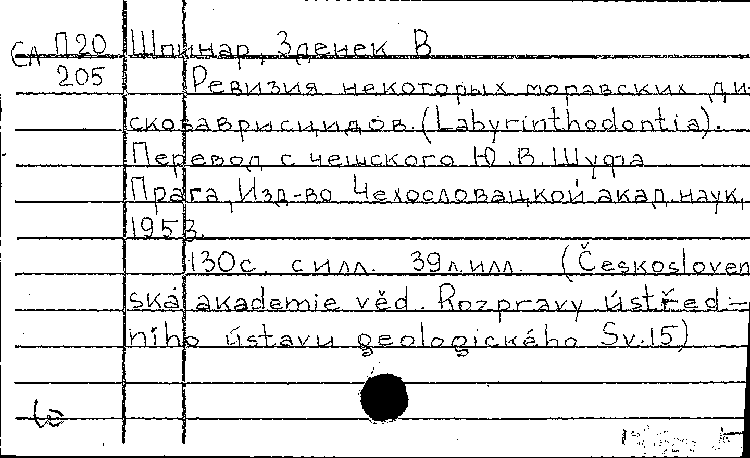 СЛ П20 Шпинар, Зденек В
205 Ревизия некоторых моравских ди-
скозаврисцидов. (Labyrinthodontia).
Перевод с чешского Ю.В.Шуфа
Прага, Изд-во Чехословацкой акад. наук,
1953.
130с. с илл. 39л.илл. (Českosloven
ská akademie věd. Rozpravy ústřed-
ního ústavu geologického Sv.15)